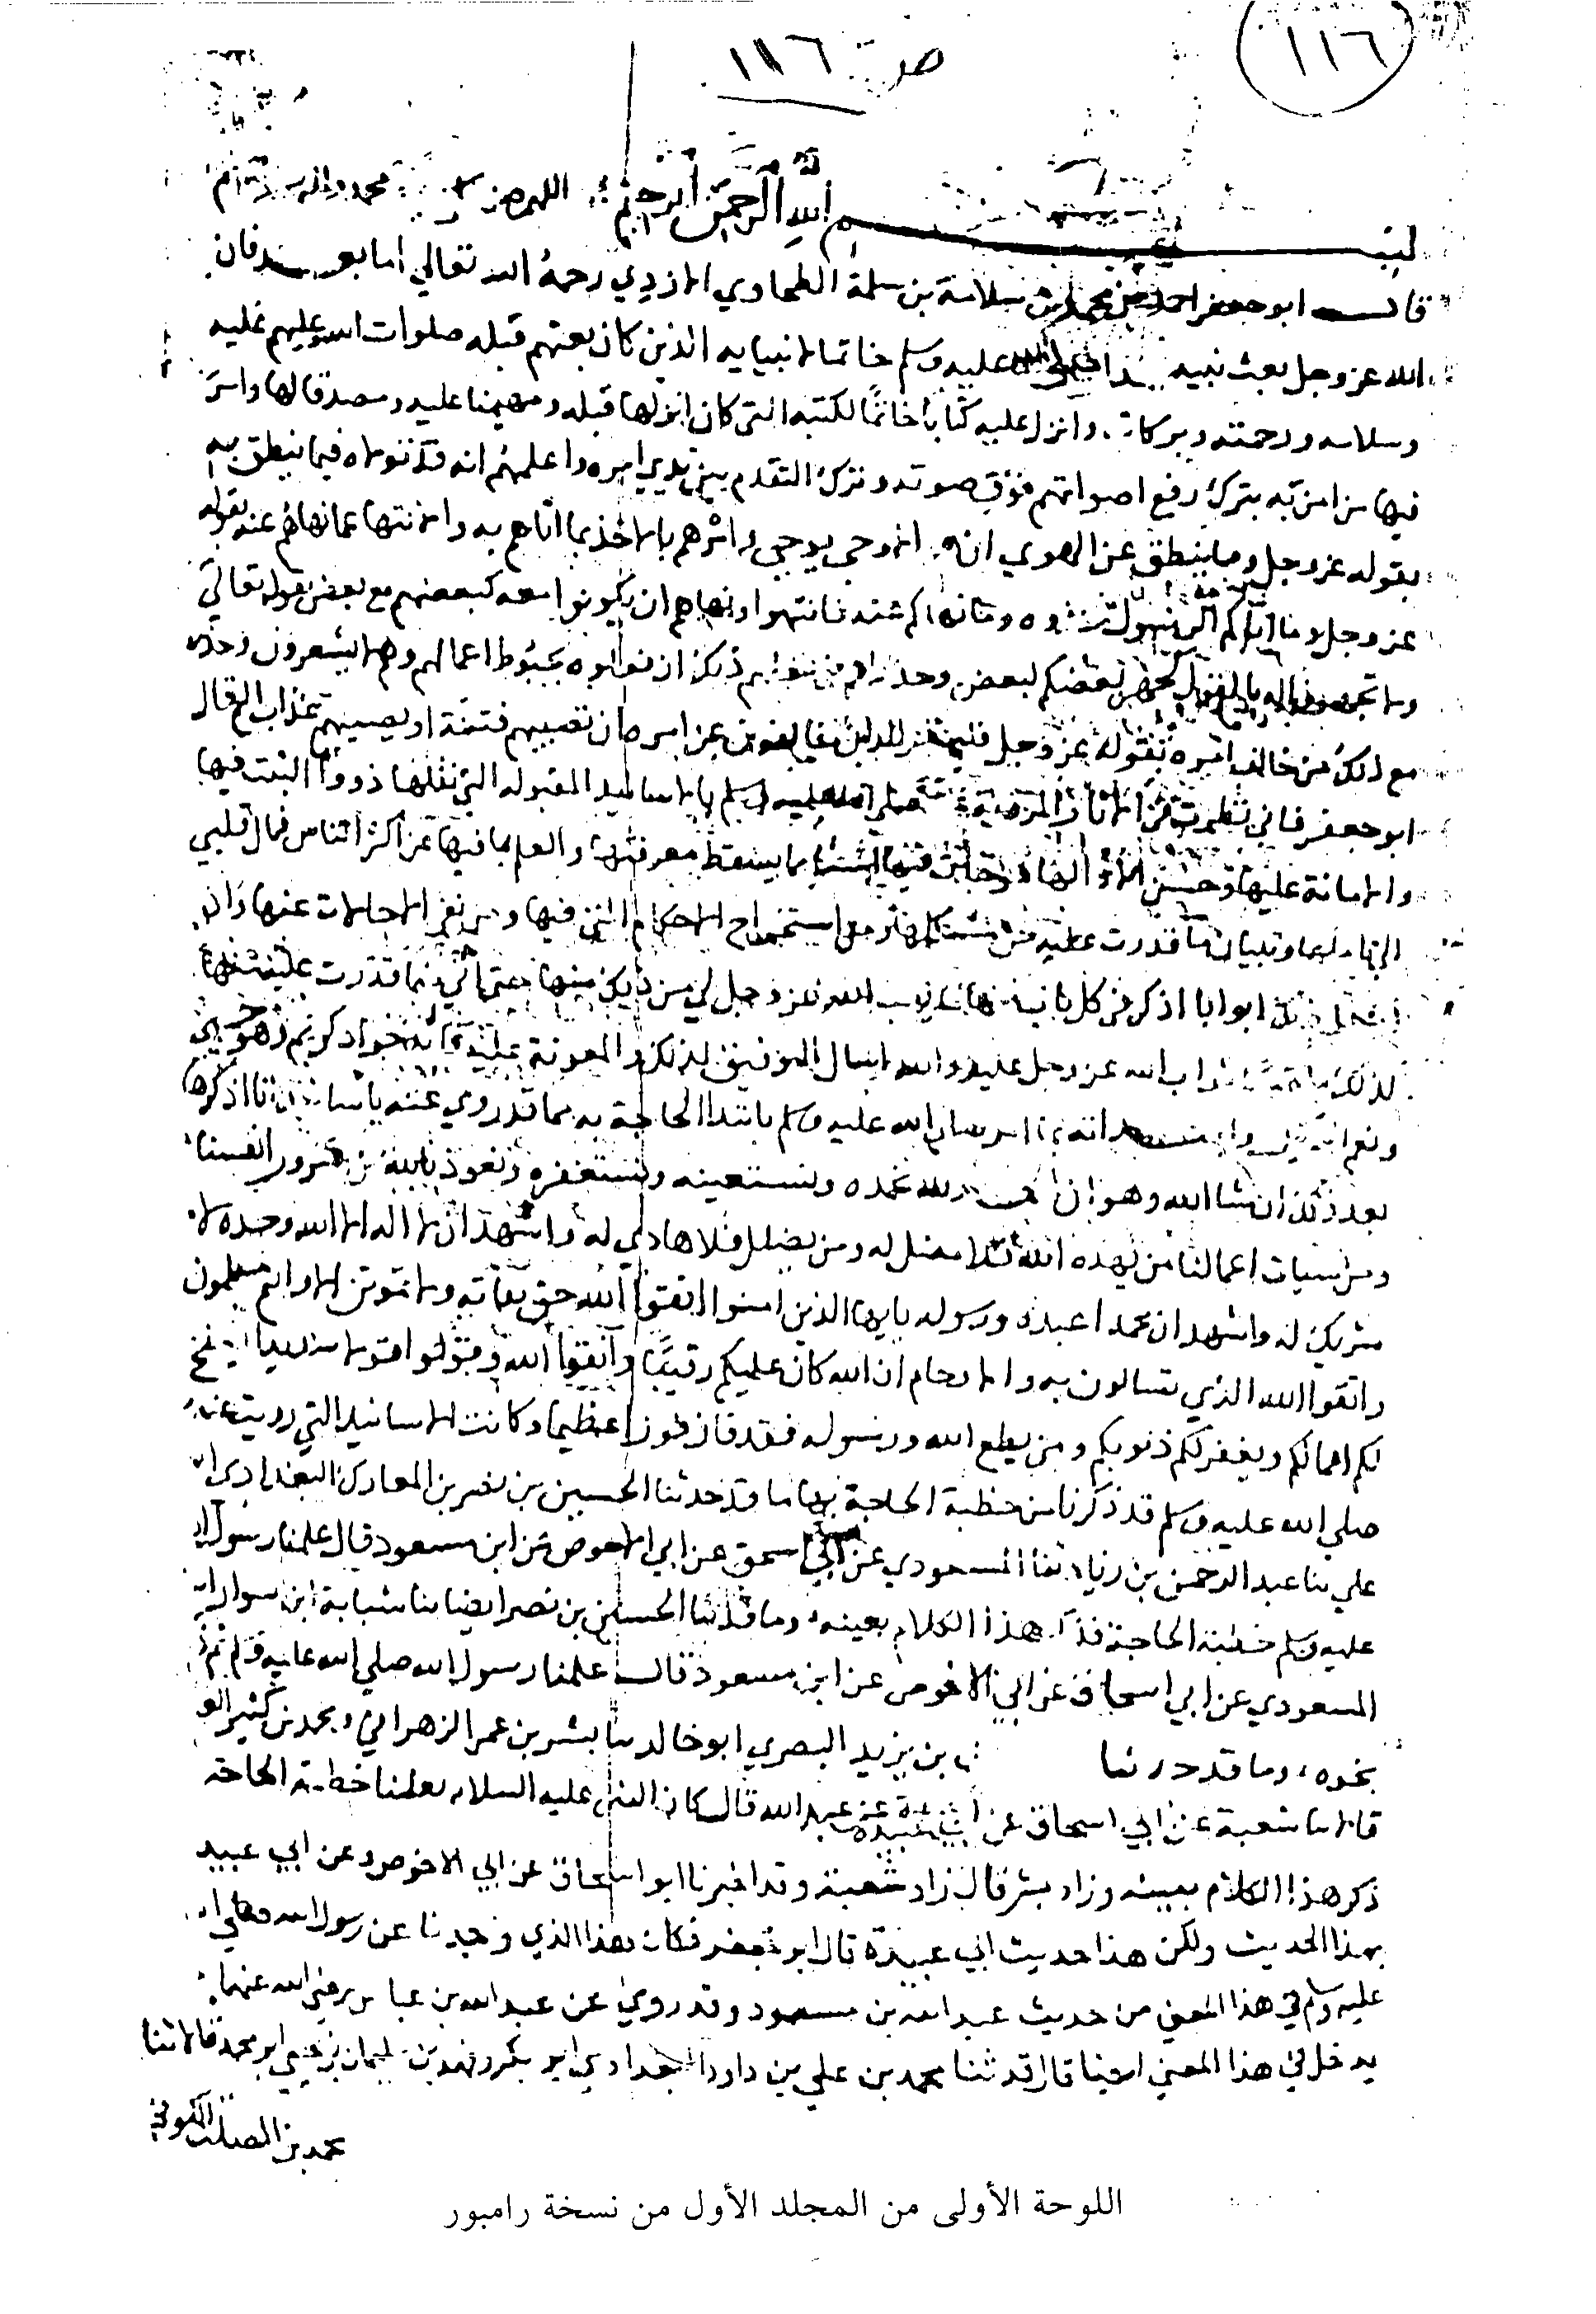 ١١٦
صـ ١١٦
بسم الله الرحمن الرحيم اللهم صل محمد
قال ابو جعفر احمد بن محمد بن سلامة بن سلمة الطحاوي الازدي رحمه الله تعالي اما بعد فان
الله عز وجل بعث نبيه عليه وسلم خاتما لانبيايه الذين كان بعثهم قبله صلوات الله عليه وعليهم
وسلامه ورحمته وبركاته وانزل عليه كتابا خاتما لكتبه التي كان انزلها قبله ومهيمنا عليه ومصدقا لها وامر
فيها من امن به بترك رفع اصواتهم فوق صوته وترك التقدم بين يدي امره واعلمهم انه قد تولاه فيما ينطق به
بقوله عز وجل وما ينطق عن الهوي ان الا وحي يوحي وامرهم بالاخذ بما اتاهم به والانتها عما نهاهم عنه بقوله
عز وجل وما اتاكم الرسول وما نهاكم عنه فانتهوا ونهاهم ان يكونوا معه كبعضهم مع بعض بقوله تعالي
ولا تجهروا له بالقول كجهر بعضكم لبعض وحذرهم ذلك ان فعلوه بحبوط اعمالهم وهم لا يشعرون وحذر
مع ذلك من خالف امره بقوله عز وجل فليحذر الذين يخالفون عن امره ان تصيبهم فتنة او يصيبهم عذاب اليم قال
ابو جعفر فاني نظرت في الاثار المروية صلي الله عليه وسلم بالاسانيد المقبولة التي نقلها ذووا التثبت فيها
والامانة عليها وحسن الادا لها فوجدت فيها اشياء مما يسقط معرفتها والعلم بما فيها عن اكثر الناس فمال قلبي
الي تاملها وتبيان ما قدرت عليه من مشكلها ومن استخراج الاحكام التي فيها ومن نفي الاحالات عنها وان
ابوابا اذكر في كل باب منها ما يهب الله عز وجل لي من ذلك منها حتي اتي فيما قدرت عليه منها
كذلك ثواب الله عز وجل عليه والله اسال التوفيق لذلك والمعونة عليه فانه جواد كريم وهو حسبي
ونعم الوكيل صلي الله عليه وسلم بابتدا الحاجة به مما قد روي عنه باسانيد انا اذكرها
بعد ذلك ان شا الله وهو ان لله نحمده ونستعينه ونستغفره ونعوذ بالله من شرور انفسنا
ومن سيات اعمالنا من يهده الله فلا مضل له ومن يضلل فلا هادي له واشهد ان لا اله الا الله وحده لا
شريك له واشهد ان محمدا عبده ورسوله يايها الذين امنوا اتقوا الله حق تقاته ولا تموتن الا وانتم مسلمون
واتقوا الله الذي تسالون به والارحام ان الله كان عليكم رقيبا واتقوا الله وقولوا قولا سديدا يصلح
لكم اعمالكم ويغفر لكم ذنوبكم ومن يطع الله ورسوله فقد فاز فوزا عظيما وكانت الاسانيد التي رويت عنه
صلي الله عليه وسلم قد ذكرنا من خطبة الحاجة بها ما قد حدثنا الحسين بن نصر بن المعارك البغدادي ابو
علي نا عبد الرحمن بن زياد ثنا المسعودي عن ابي اسحق عن ابي الاحوص عن ابن مسعود قال علمنا رسول الله
عليه وسلم خطبة الحاجة فذكر هذا الكلام بعينه وما قد ثنا الحسين بن نصر ايضا نا شبابة ابن سوار
المسعودي عن ابي اسحاق عن ابي الاحوص عن ابن مسعود قال علمنا رسول الله صلي الله عليه وسلم ثم ذكر
نحوه وما قد حدثنا بن يزيد البصري ابو خالد نا بشر بن عمر الزهراني ومحمد بن كثير العبدي
قالا نا شعبة عن ابي اسحاق عن ابي عبيدة عن عبد الله قال كان النبي عليه السلام يعلمنا خطبة الحاجة
ذكر هذا الكلام بعينه وزاد بشر قال زاد شعبة وقد اخبرنا ابو اسحاق عن ابي الاحوص وعن ابي عبيدة
بهذا الحديث ولكن هذا حديث ابي عبيدة قال ابو جعفر فكان هذا الذي وجدنا عن رسول الله صلي الله
عليه وسلم في هذا المعني من حديث عبد الله بن مسعود وقد روي عن عبد الله بن عباس رضي الله عنهما
يدخل في هذا المعني ايضا قال قد ثنا محمد بن علي بن داود البغدادي ابو بكر وفهد بن سليمان بن يحيي ابو محمد قالا ثنا
محمد بن الصلت الكوفي
اللوحة الأولى من المجلد الأول من نسخة رامبور